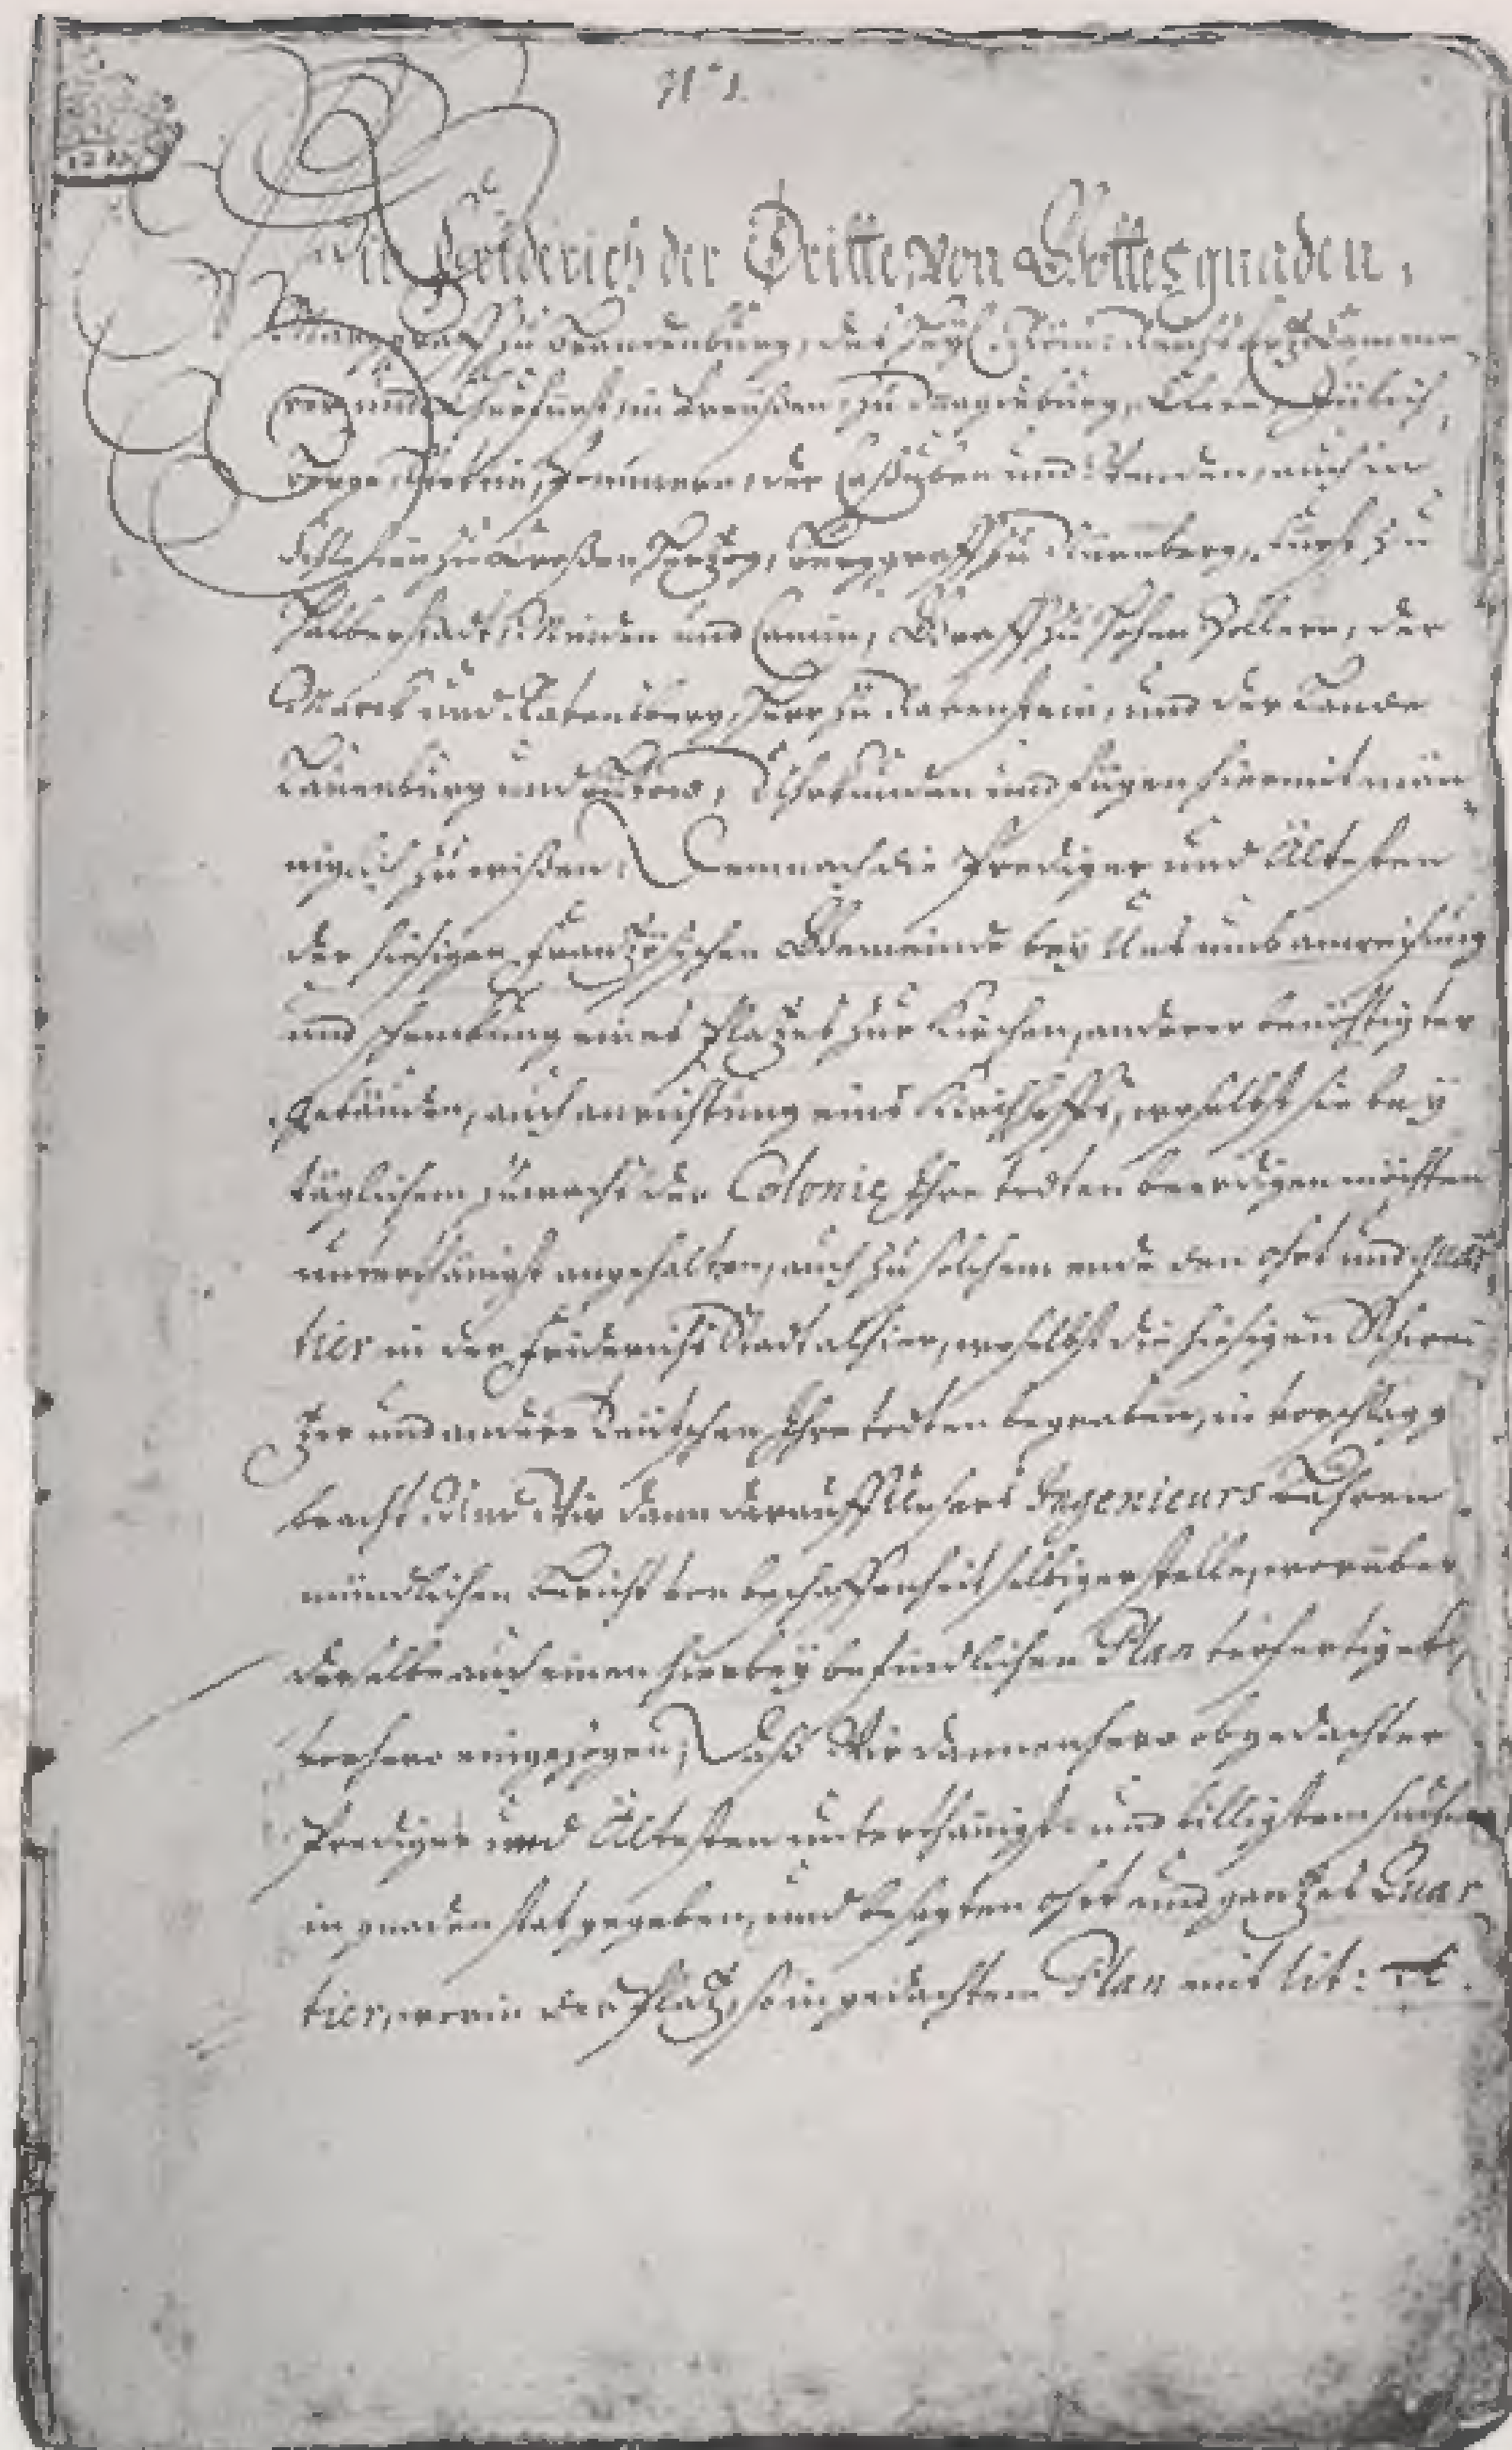 N° 1.
Wir Friderich der Dritte, von Gottes gnaden,
Marggraff zu Brandenburg, des Heyl. Röm: Reichs Ertz Cämme-
rer und Churfürst, in Preußen, zu Magdeburg, Cleve, Jülich,
Berge, Stettin, Pommern, der Caßuben und Wenden, auch in
Schlesien zu Croßen Hertzog, Burggraff zu Nürnberg, Fürst zu
Halberstadt, Minden und Camin, Graff zu Hohen Zollern, der
Marck und Ravensberg, Herr zu Ravenstein, und der Lande
Lauenburg und Bütow, Uhrkunden und fügen hiermit män-
niglich zu wißen; Demnach die Prediger und Ältesten
der hiesigen Französischen Gemeinde bey Uns umb anweisung
und schenckung eines Platzes zur Kirchen, anderer benöthigter
Gebäuden, auch anrichtung eins Kirchhoffs, woselbst sie bey
täglichem zuwachs der Colonie Ihre todten beerdigen möchten
unterthänigst angehalten, auch zu solchem ende den ohrt und Quar
tier in der Friderichs Stadt alhier, woselbst die hiesigen Schwei
tzer und andere Teutschen Ihre todten begraben, in vorschlag g
bracht. Und Wir dann darauff Unsers Ingenieurs
mündlichen Bericht von beschaffenheit selbiger stelle, worüber
derselbe auch einen hierbey befindlichen Plan verfertiget,
vorhero eingezogen; Daß Wir dannenhero obgedachter
Prediger und Ältesten unterthänigst- und billigstem suchen
in gnaden stat gegeben, und besagten ohrt und gantzes Quar
tier, worin der Platz, so in gedachtem Plan mit lit: A.